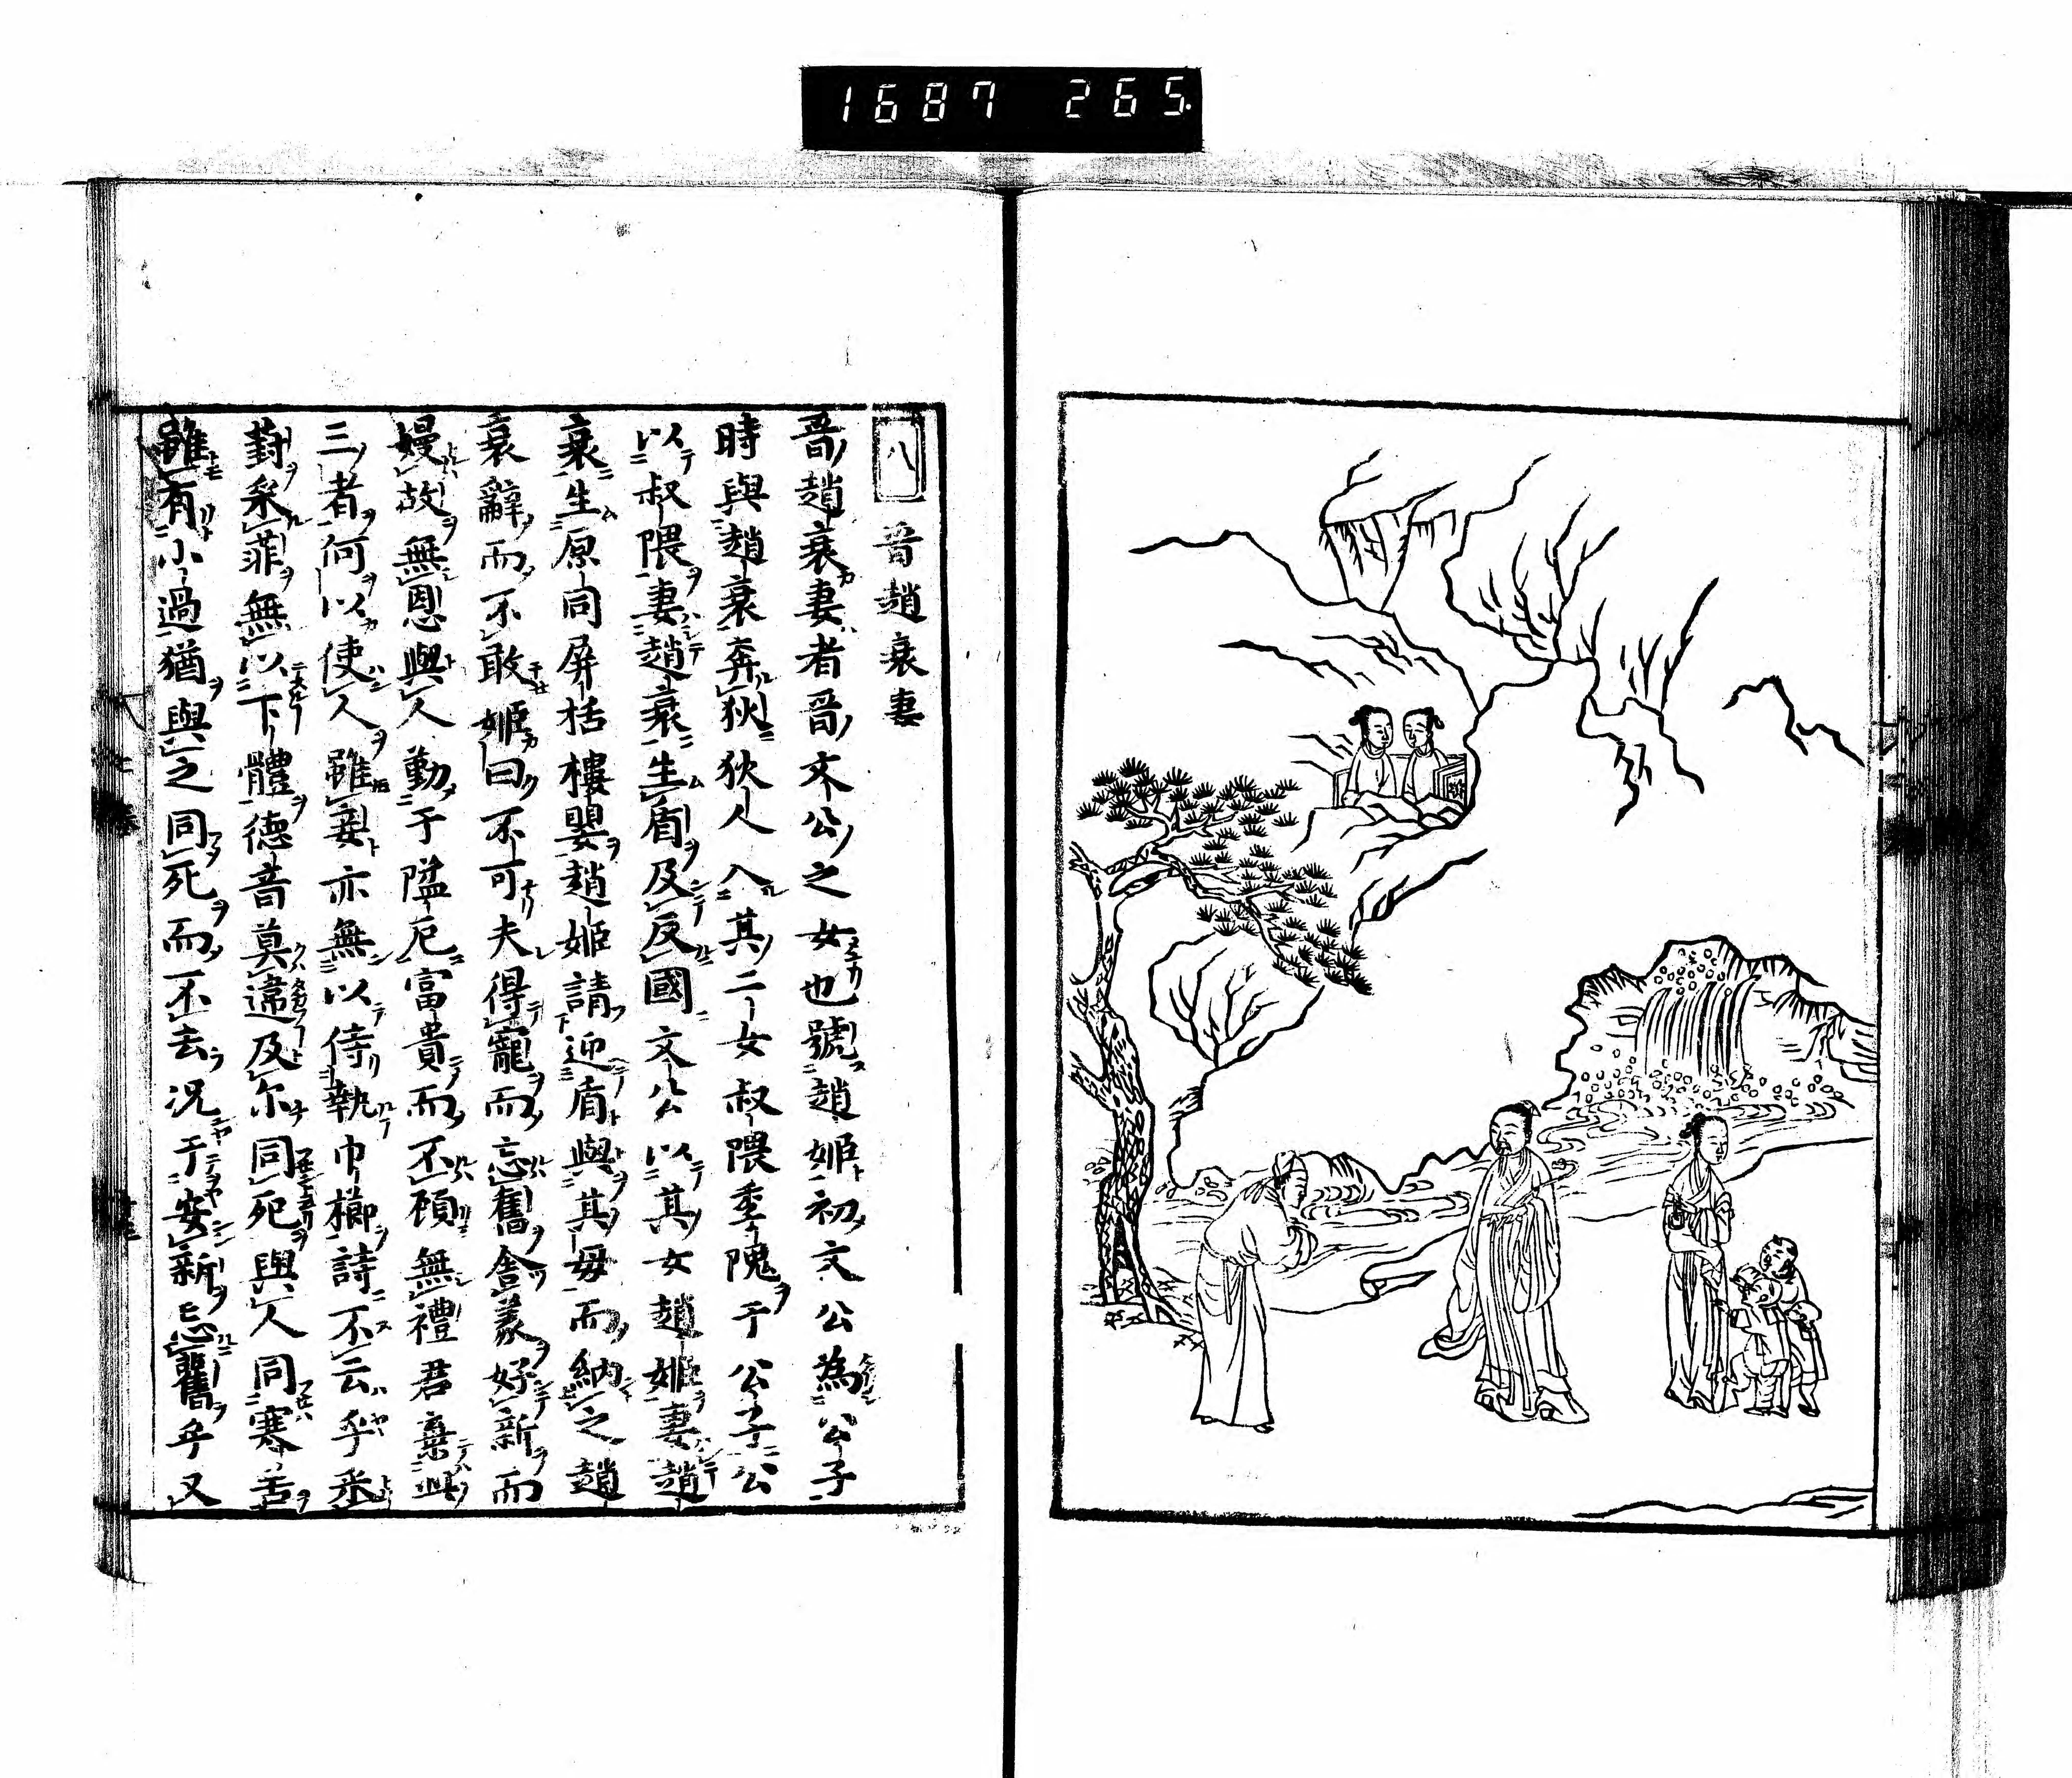 1687 265
八 晉趙衰妻
晋趙衰妻者晋文公之女也號趙姬初文公為公子
時與趙衰奔狄狄人入其二女叔隗季隗于公子公
以叔隗妻趙衰生盾及反國文公以其女趙姬妻趙
衰生原同屏括樓嬰趙姬請迎盾與其母而納之趙
衰辭而不敢姬曰不可夫得寵而忘舊舍義好新而
嫚故無恩與人勤于隘厄富貴而不顧無禮君棄此
三者何以使人雖妾亦無以侍執巾櫛詩不云乎采
葑采菲無以下體德音莫違及尔同死與人同寒苦
雖有小過猶與之同死而不去况于安新忘舊乎又